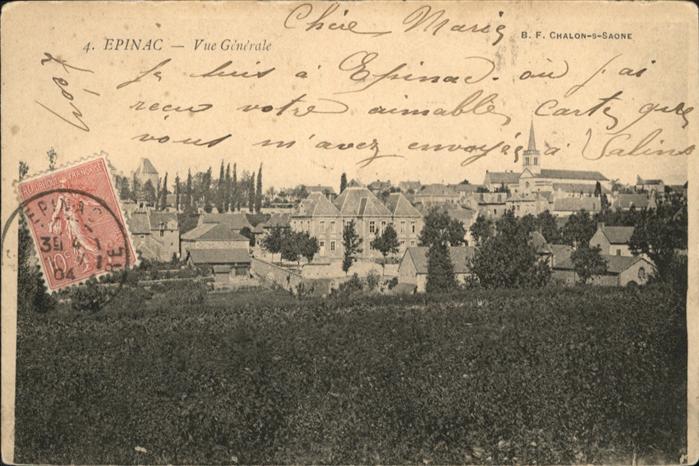 Chère Marie
4. EPINAC — Vue Générale
B. F. CHALON-S-SAONE
Je suis à Epinac. où j'ai
reçu votre aimable carte que
vous m'avez envoyée à Salins
Léon
REPUBLIQUE FRANÇAISE
10c
EPINAC
04